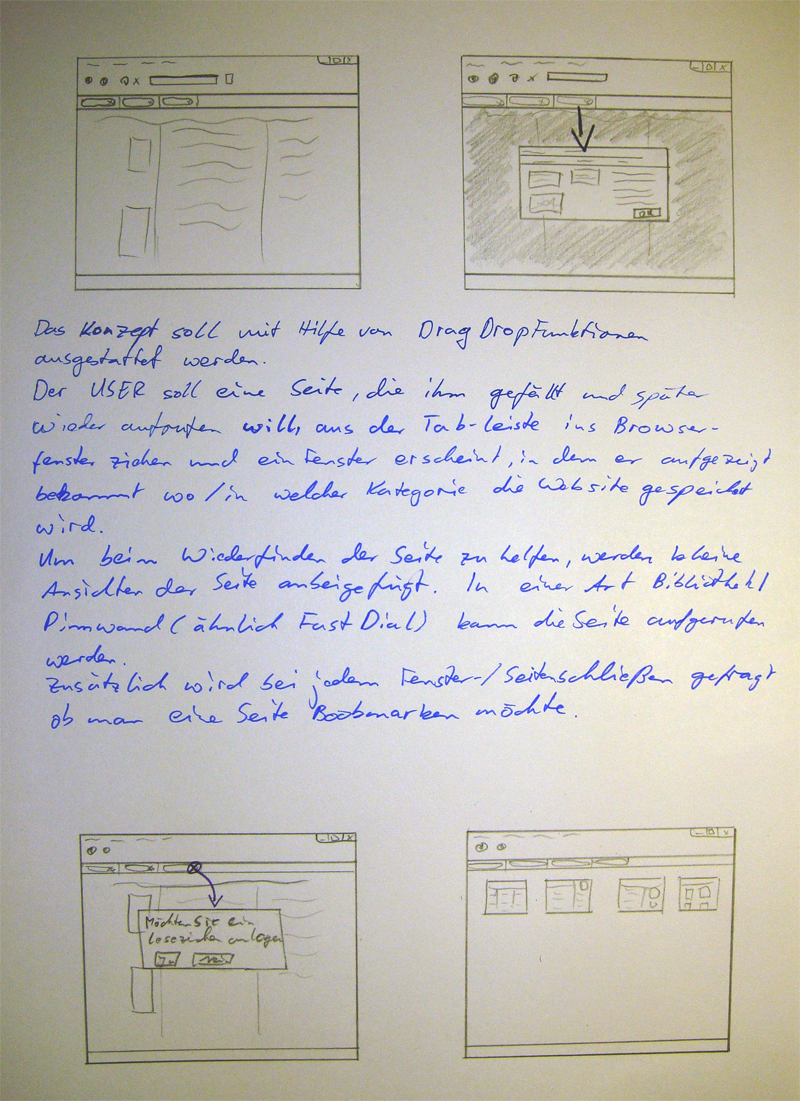 OK
Das Konzept soll mit Hilfe von Drag Drop Funktionen
ausgestattet werden.
Der USER soll eine Seite, die ihm gefällt und später
wieder aufrufen will, aus der Tab-leiste ins Browser-
fenster ziehen und ein Fenster erscheint, in dem er aufgezeigt
bekommt wo/in welcher Kategorie die Website gespeichert
wird.
Um beim Wiederfinden der Seite zu helfen, werden kleine
Ansichten der Seite anbeigefügt. In einer Art Bibliothek/
Pinnwand (ähnlich Fast Dial) kann die Seite aufgerufen
werden.
Zusätzlich wird bei jedem Fenster-/Seitenschließen gefragt
ob man eine Seite Bookmarken möchte.
Möchten Sie ein
lesezeichen anlegen
Ja Nein